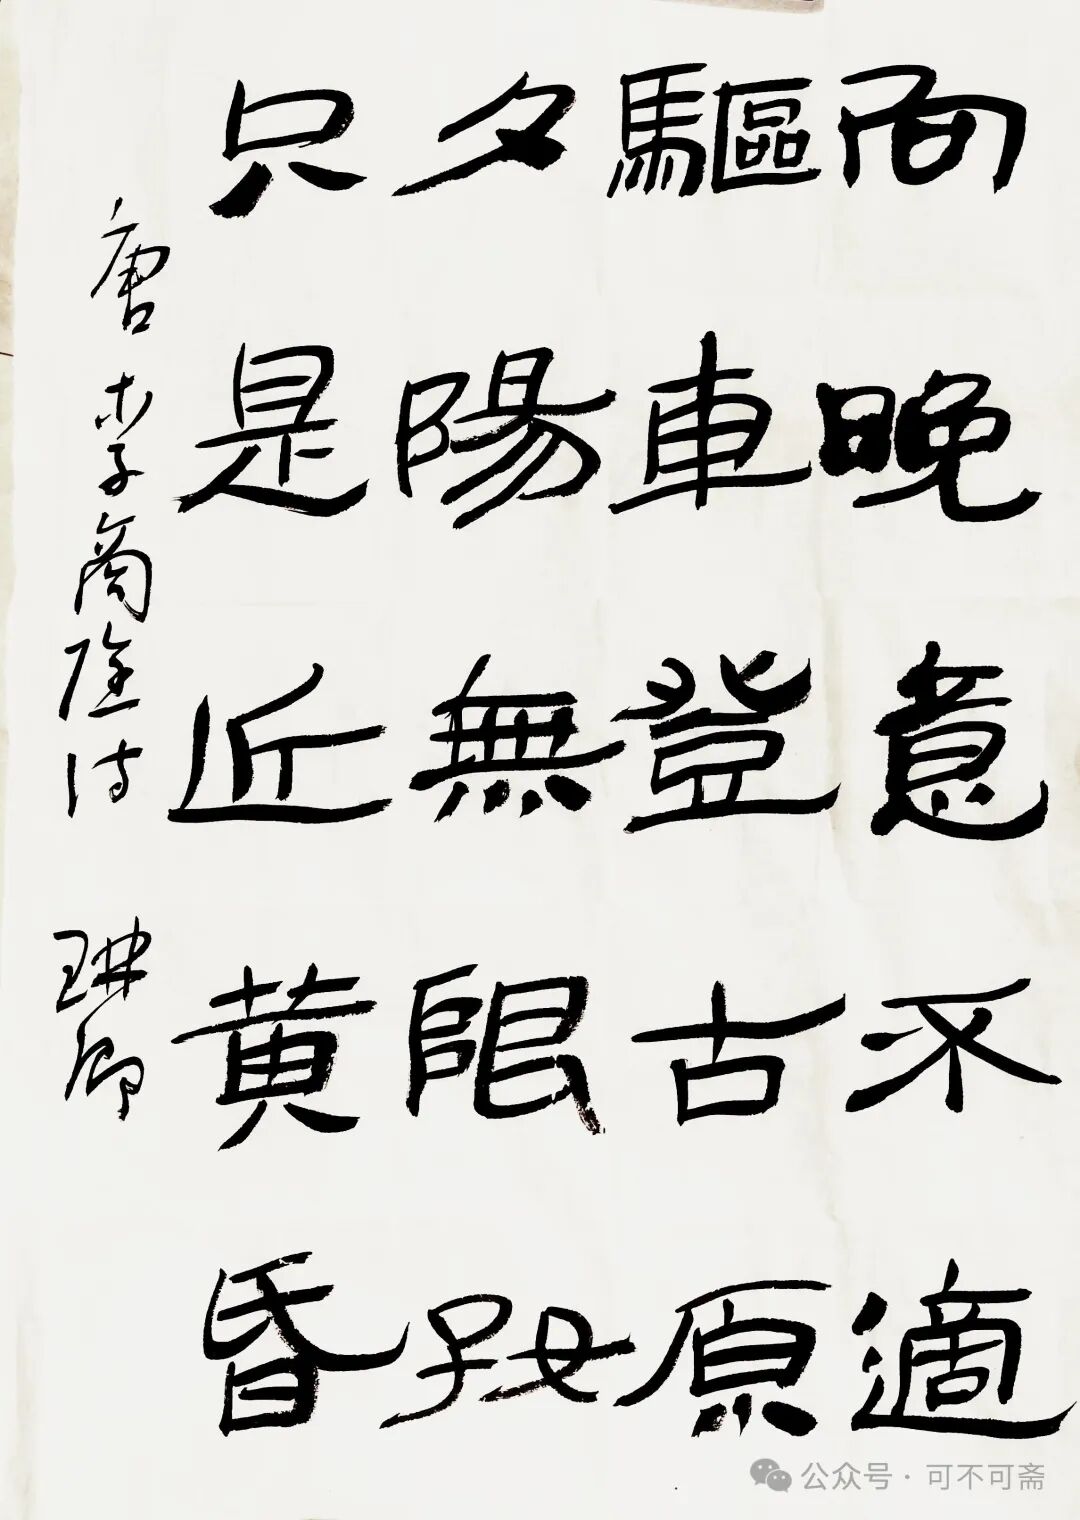 向晚意不適
驅車登古原
夕陽無限好
只是近黄昏
唐李商隐诗
琳卿
公众号·可不可斋